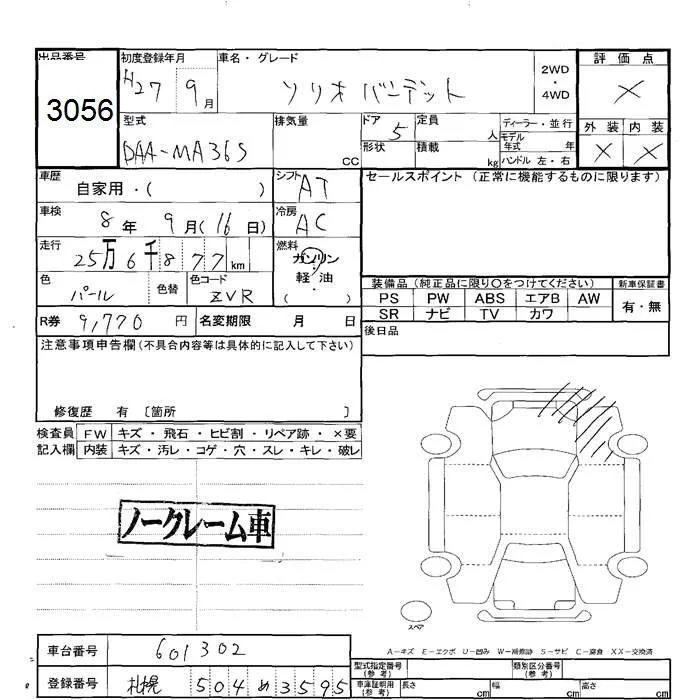 出品番号
3056
初度登録年月
H27 9月
車名・グレード
ソリオ バンデット
2WD
・
4WD
評価点
×
外装 内装
× ×
型式
DAA-MA36S
排気量
cc
ドア 5
形状
定員 人
積載 kg
ディーラー・並行
モデル
年式 年
ハンドル 左・右
車歴
自家用・( )
シフト AT
セールスポイント (正常に機能するものに限ります)
車検
8年 9月(16日)
冷房 AC
走行
25万6千877km
燃料
ガソリン
軽油
( )
色
パール
色替
色コード
ZVR
装備品 (純正品に限り○をつけてください)
新車保証書
PS PW ABS エアB AW
有・無
SR ナビ TV カワ
R券 9,770円
名変期限 月 日
後日品
注意事項申告欄(不具合内容等は具体的に記入して下さい)
修復歴 有 〔箇所 〕
検査員 FW キズ・飛石・ヒビ割・リペア跡・×要
記入欄 内装 キズ・汚レ・コゲ・穴・スレ・キレ・破レ
ノークレーム車
スペア
A-キズ E-エクボ U-凹み W-補修跡 S-サビ C-腐食 XX-交換済
車台番号 601302
型式指定番号
(参考)
類別区分番号
(参考)
登録番号 札幌 504 め 3595
車庫証明用
(参考)
長さ cm
幅 cm
高さ cm